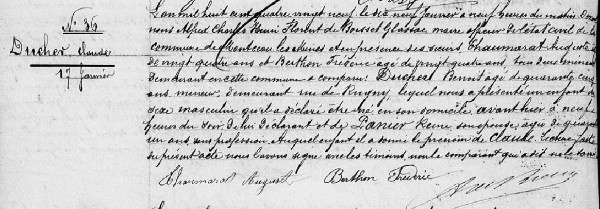 N.° 36
Ducher, Claude
17 Janvier
L'an mil huit cent quatre vingt neuf le dix neuf Janvier à neuf heures du matin Devant
nous Alfred Charles Henri Florent de maire officier de l'état civil de la
commune de et en présence des sieurs, Chaumarat Auguste âgé
de vingt quatre ans et Berthon Frédéric âgé de vingt quatre ans, tous deux
demeurant en cette commune a comparu Ducher Benoit âgé de quarante cinq
ans, mineur, demeurant rue de lequel nous a présenté un enfant du
sexe masculin qu'il a déclaré être né en son domicile, avant hier à neuf
heures du soir De lui Déclarant et de Panier Reine son épouse, âgée de quarante
un ans, sans profession Auquel enfant il a donné le prénom de Claude. Lecture faite
du présent acte nous l'avons signé avec les témoins, non le comparant qui a dit ne le savoir
Chaumarat August Berthon Frédéric